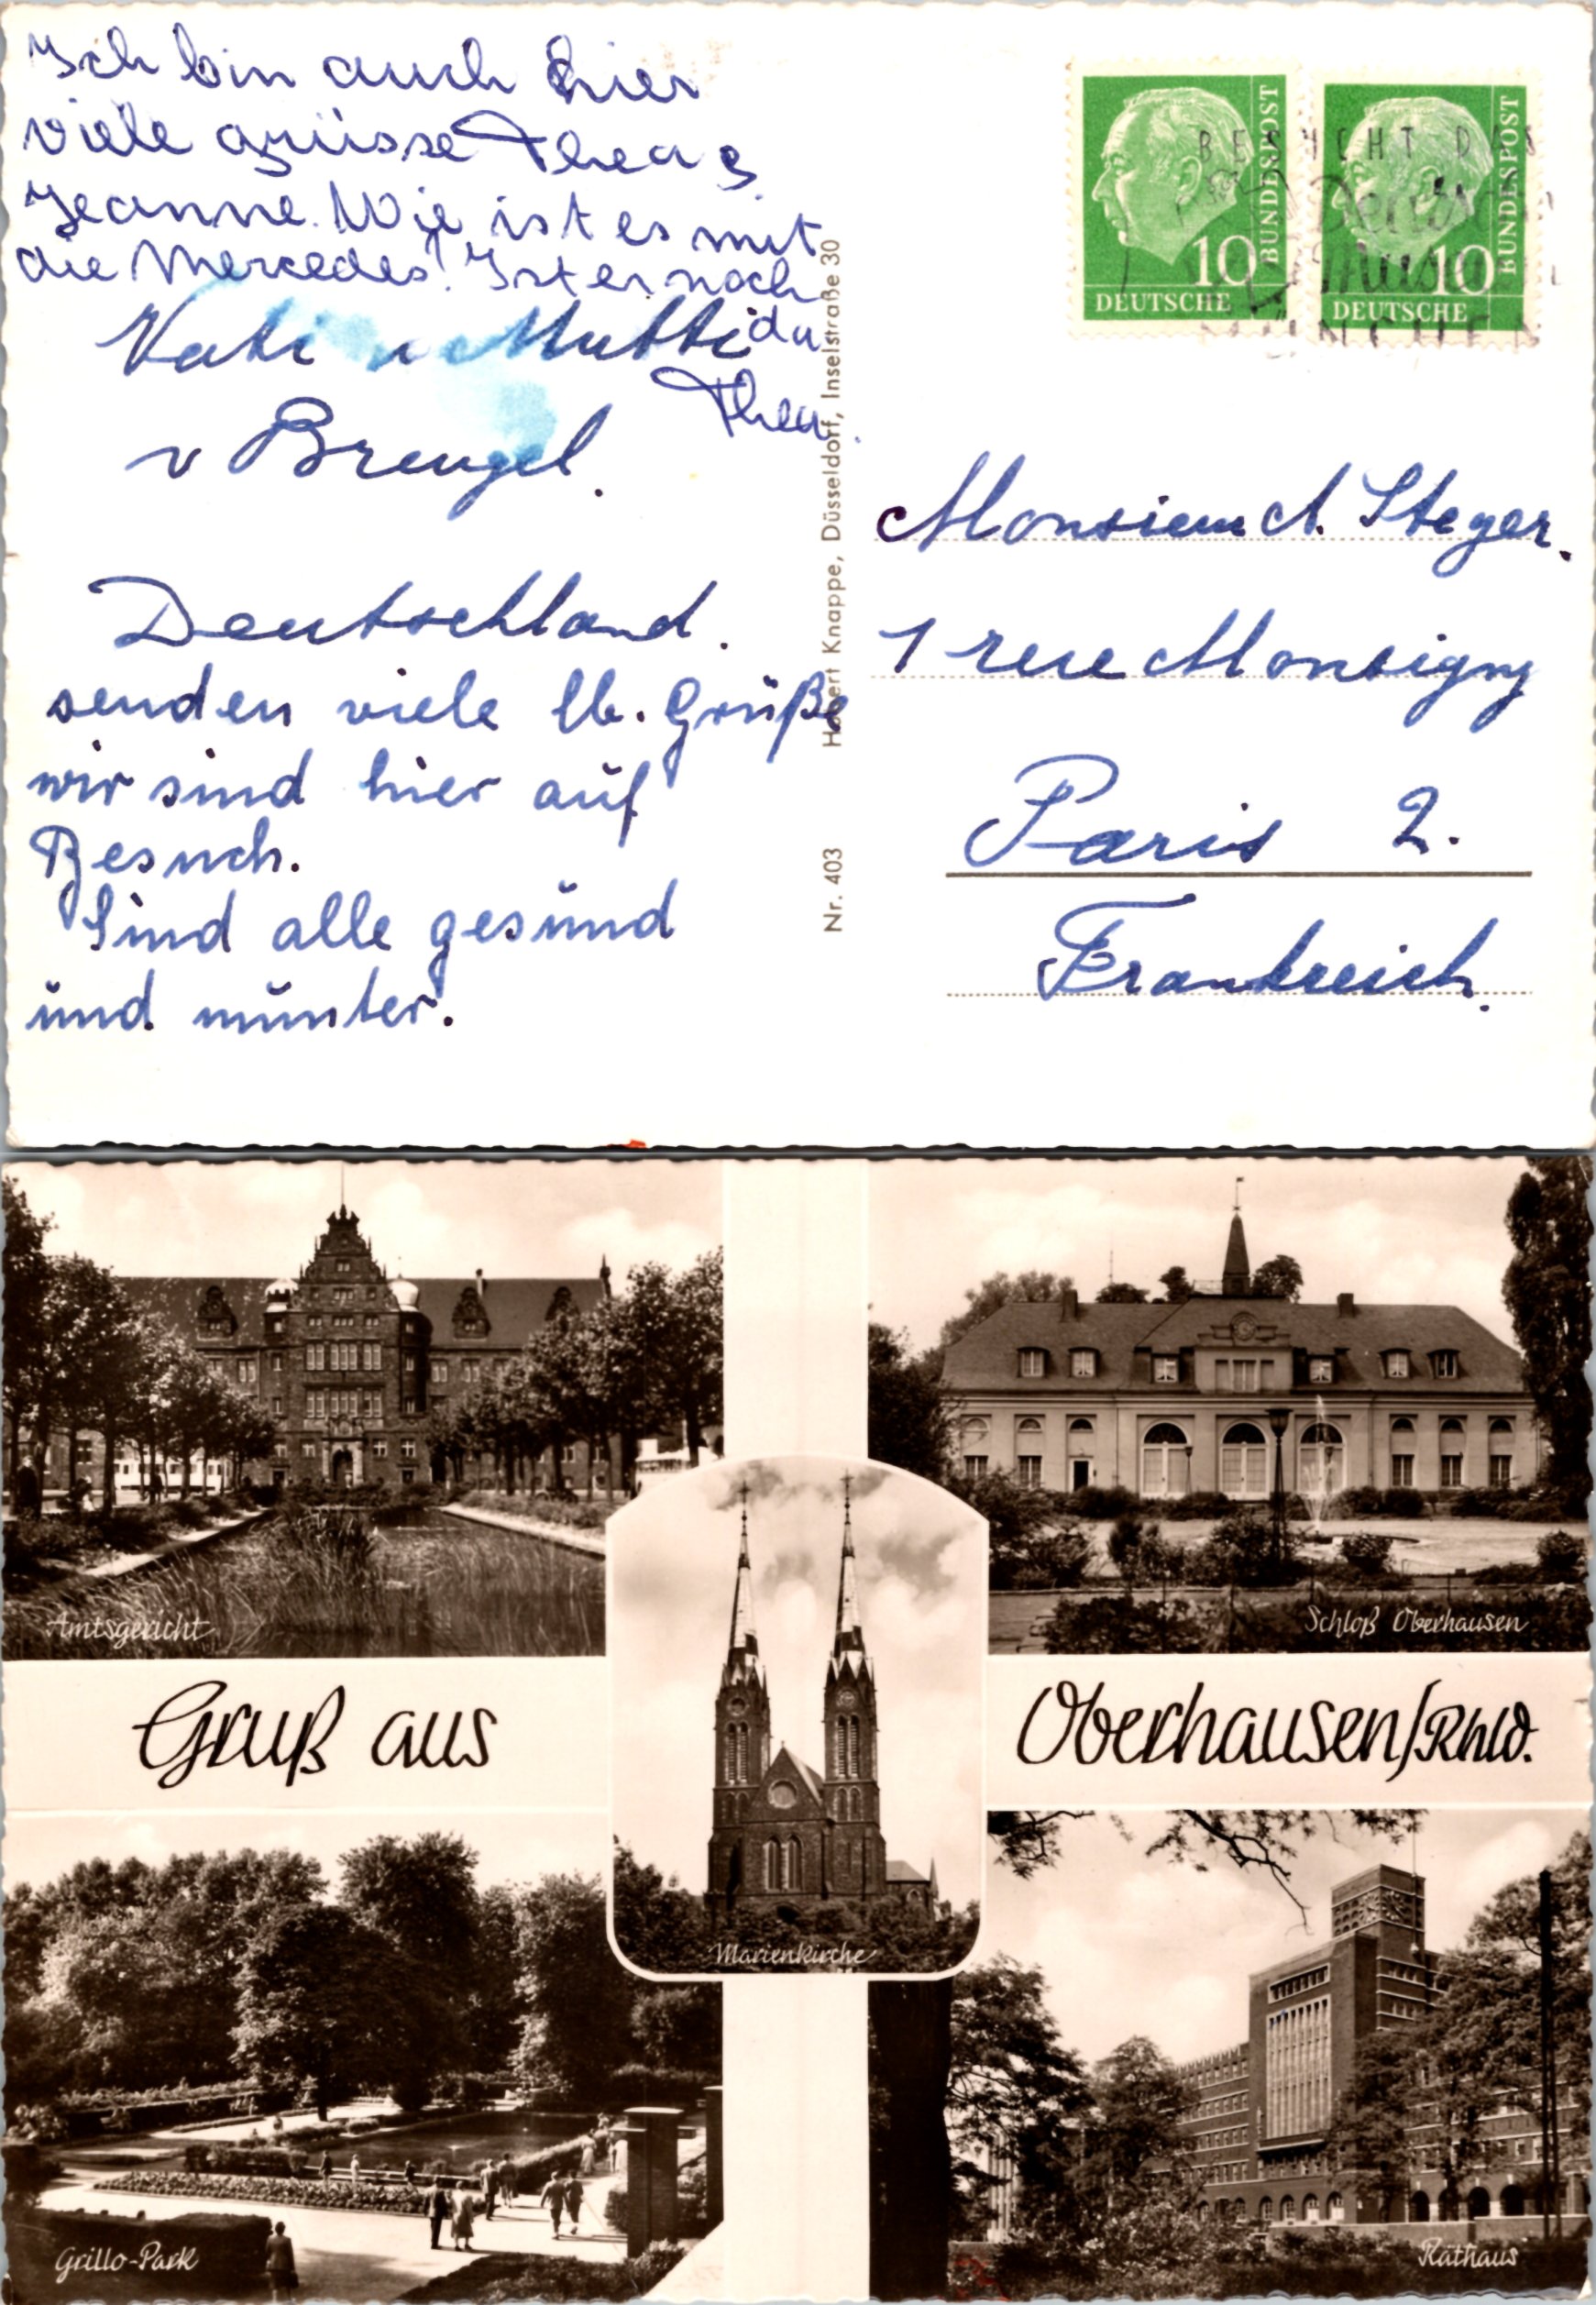 Ich bin auch hier
viele grüsse Thea &
Jeanne. Wie ist es mit
die Mercedes? Ist er noch
da
Thea.
Vati u Mutti
v Brengel.
Deutschland.
senden viele lb. Grüße
wir sind hier auf
Besuch.
Sind alle gesund
und munter.
Hubert Knappe, Düsseldorf, Inselstraße 30
Nr. 403
10
DEUTSCHE
BUNDESPOST
10
DEUTSCHE
BUNDESPOST
BESUCHT DAS
Deutsche
Museum
MÜNCHEN
Monsieur A. Steger.
1 rue Monsigny
Paris 2.
Frankreich.
Amtsgericht
Schloß Oberhausen
Gruß aus
Oberhausen/Rhld.
Marienkirche
Grillo-Park
Rathaus